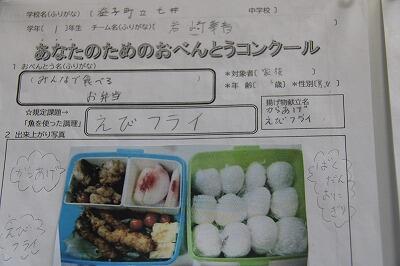 学校名(ふりがな) (益子町立 七井 中学校)
学年( 1 )年生 チーム名(ふりがな)
あなたのためのおべんとうコンクール
1 おべんとう名(ふりがな)
(みんなで食べる
お弁当 )
*対象者( 家族 )
*年 齢( 歳) *性別(男,女)
☆規定課題→
「魚を使った調理」
えびフライ
揚げ物献立名
からあげ
えびフライ
2 出来上がり写真
からあげ
えびフライ
ばくだんおにぎり